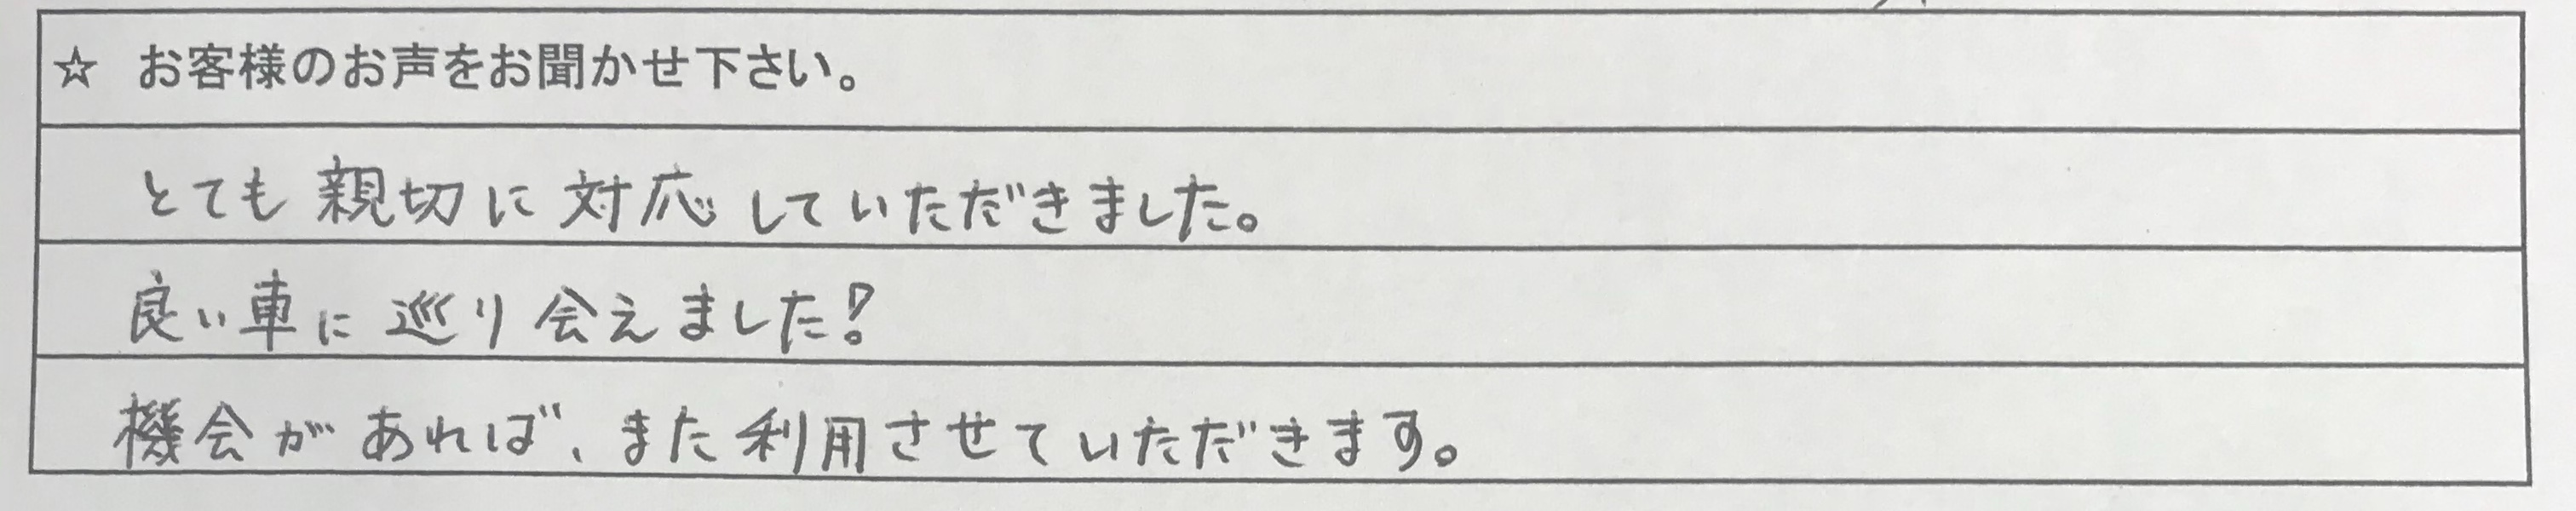 ☆ お客様のお声をお聞かせ下さい。
とても親切に対応していただきました。
良い車に巡り会えました!
機会があれば、また利用させていただきます。